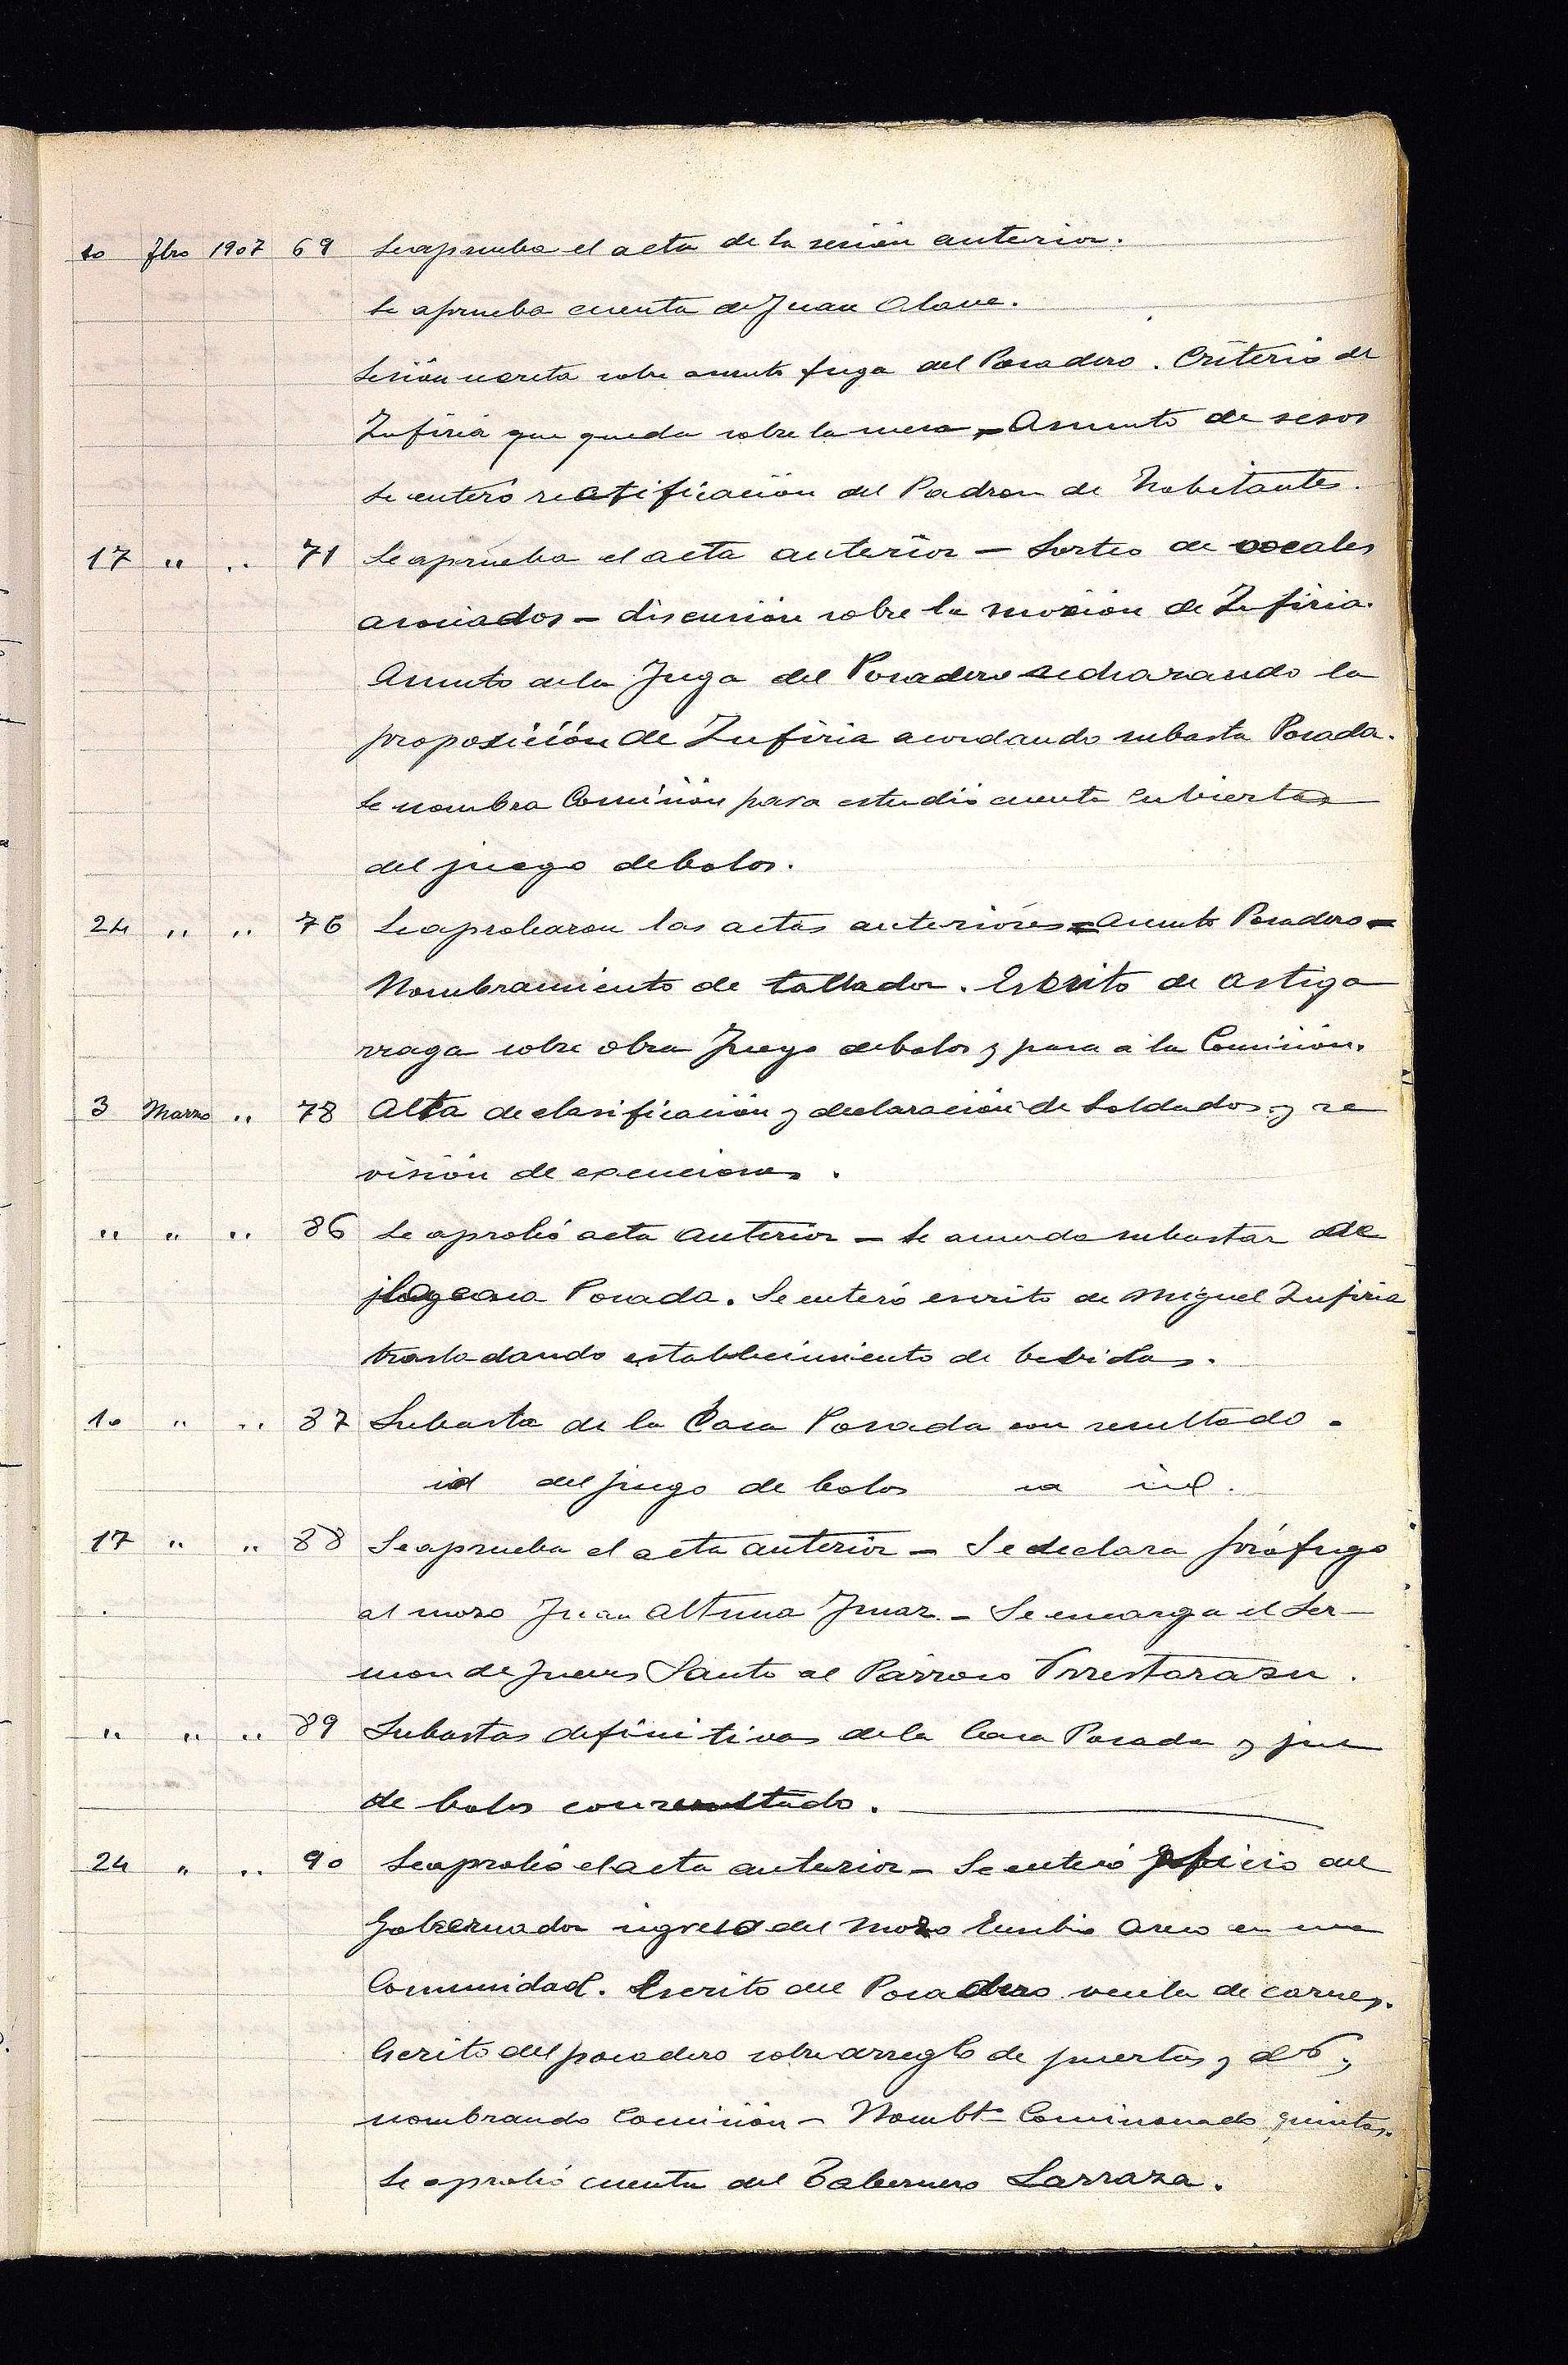 10 Fbro 1907 69 Se aprueba el acta de la sesión anterior.
Se aprueba cuenta de Juan Olave.
Sesión secreta sobre asunto fuga del Posadero. Criterio de
Zufiria que queda sobre la mesa = Asunto de sesos
Se enteró rectificación del Padron de habitantes.
17 " " 71 Se aprueba el acta anterior - Sorteo de vocales
asociados - discusión sobre la moción de Zufiria.
Asunto de la fuga del Posadero rechazando la
proposición de Zufiria acordando subasta Posada.
Se nombra Comisión para estudio cuenta cubiertas
del juego de bolos.
24 " " 76 Se aprobaron las actas anteriores = asunto Posadero =
Nombramiento de tallador. Escrito de Astiga
rraga sobre obra Juego de bolos y pasa á la Comisión.
3 Marzo " 78 Acta de clasificación y declaración de Soldados y re
visión de exenciones.
" " " 86 Se aprobó acta anterior - Se acuerda subastar de
casa Posada. Se enteró escrito de Miguel Zufiria
trasladando establecimiento de bebidas.
10 " " 87 Subasta de la Casa Posada con resultado.
id del juego de bolos id.
17 " " 88 Se aprueba el acta anterior - Se declara prófugo
al mozo Juan Altuna - Se encarga el Ser-
mon de Jueves Santo al Párroco Urrestarazu.
" " " 89 Subastas definitivas de la Casa Posada y
de bolos con resultado.
24 " " 90 Se aprobó el acta anterior - Se enteró oficio del
Gobernador ingreso del mozo Eusebio en una
Comunidad. Escrito del Posadero venta de carnes.
Escrito del posadero sobre arreglo de puertas y
nombrando Comisión - Nombto Comisionado quintas.
Se aprobó cuenta del Tabernero Larraza.